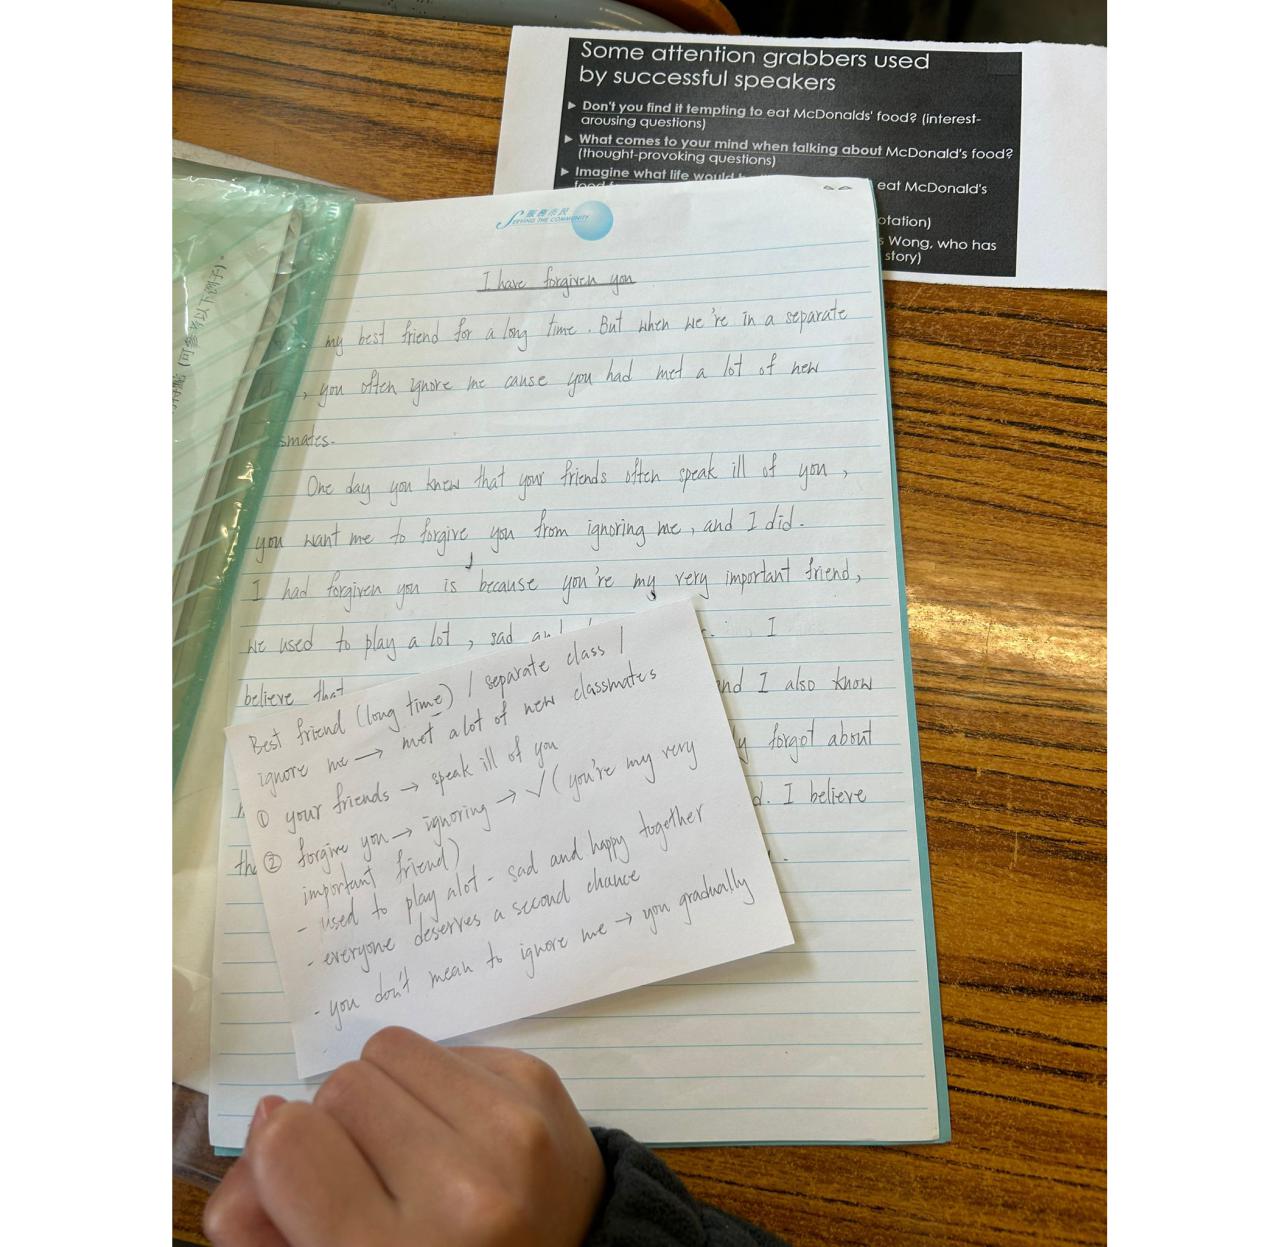 Some attention grabbers used
by successful speakers
Don't you find it tempting to eat McDonalds' food? (interest-
arousing questions)
What comes to your mind when talking about McDonald's food?
(thought-provoking questions)
Imagine what life would
eat McDonald's
Wong, who has
story)
(可參考以下例子)。
服務市民
SERVING THE COMMUNITY
I have forgiven you
my best friend for a long time. But when we're in a separate
, you often ignore me cause you had met a lot of new
smates.
One day you knew that your friends often speak ill of you,
you want me to forgive you from ignoring me, and I did.
I had forgiven you is because you're my very important friend,
we used to play a lot, sad and I
believe that and I also know
forgot about
d. I believe
Best friend (long time) / separate class /
ignore me → met alot of new classmates
① your friends → speak ill of you
② forgive you → ignoring → ✓ (you're my very
important friend)
- used to play alot - sad and happy together
- everyone deserves a second chance
- you don't mean to ignore me → you gradually